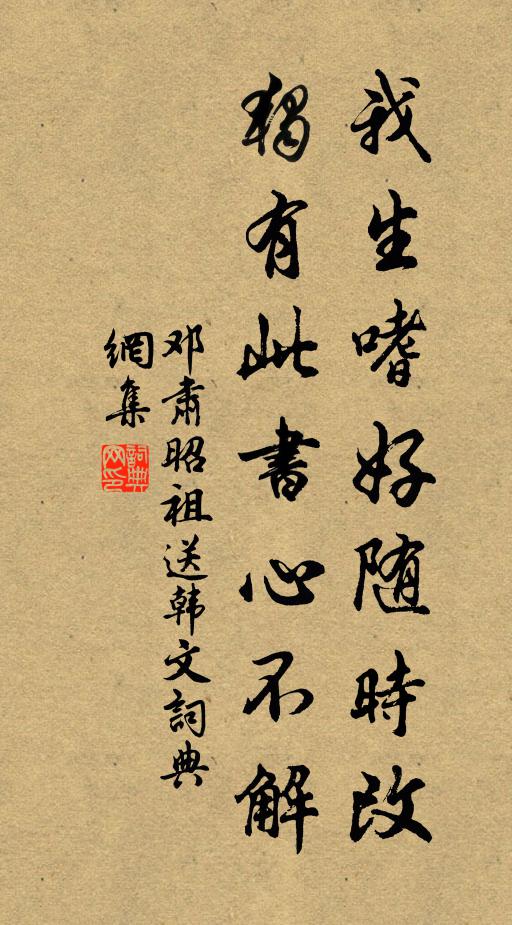 我生嗜好随時改
獨有此書心不解
邓肃昭祖送韩文詞典
網集
詞典網印